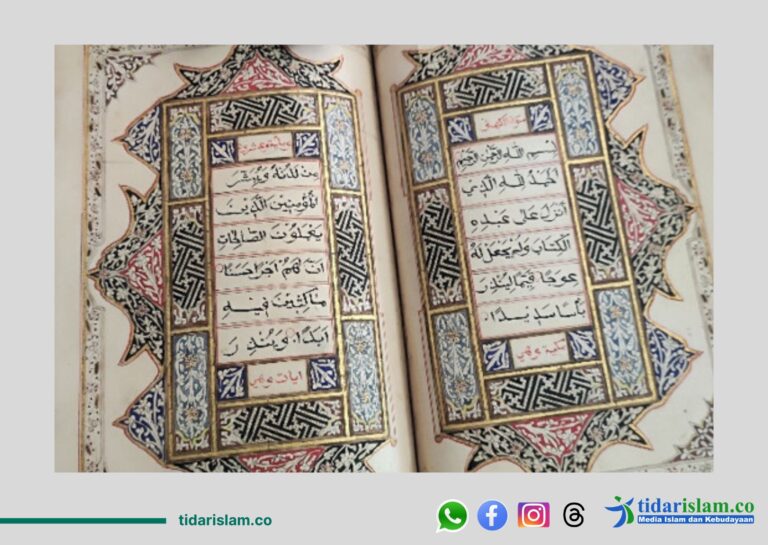 سورة الكهف
بسم الله الرحمن الرحيم
الحمد لله الذي
أنزل على عبده
الكتاب ولم يجعل له
عوجا قيما لينذر
بأسا شديدا
مكية وهي
من لدنه ويبشر
المؤمنين الذين
يعملون الصالحات
ان لهم اجرا حسنا
ماكثين فيه
ابدا وينذر
tidarislam.co
tidarislam.co
Media Islam dan Kebudayaan